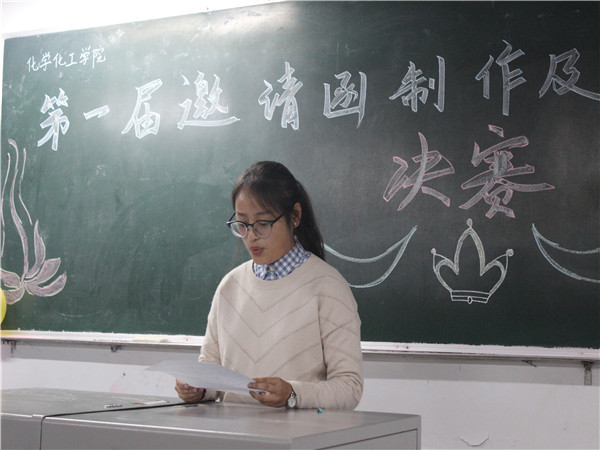 化学化工学院
第一届邀请函制作及
决赛